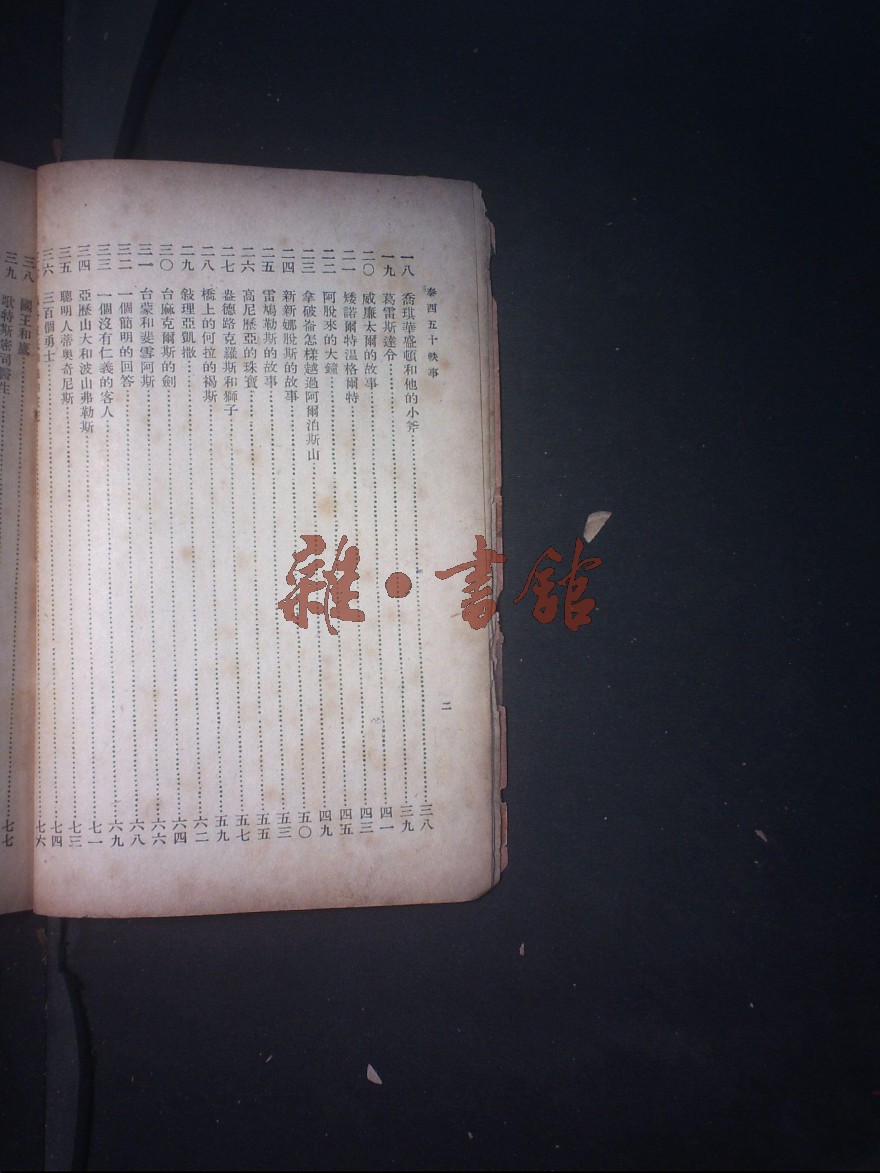 泰西五十軼事
一八 喬琪華盛頓和他的小斧……三八
一九 葛雷斯達令……三九
二〇 威廉太爾的故事……四一
二一 矮諾爾特温格爾特……四三
二二 阿股來的大鐘……四五
二三 拿破崙怎樣越過阿爾泊斯山……四九
二四 新新娜股斯的故事……五〇
二五 雷鳩勒斯的故事……五三
二六 高尼歷亞的珠寶……五五
二七 盎德路克羅斯和獅子……五七
二八 橋上的何拉的褐斯……五九
二九 敍理亞凱撒……六二
三〇 台麻克爾斯的劍……六四
三一 台蒙和斐雪阿斯……六六
三二 一個簡明的回答……六八
三三 一個沒有仁義的客人……六九
三四 亞歷山大和波山弗勒斯……七一
三五 聰明人蒂奧奇尼斯……七三
三六 三百個勇士……七四
七六
三八 國王和……
三九 歌特斯密司醫生……七七
二
雜・書館